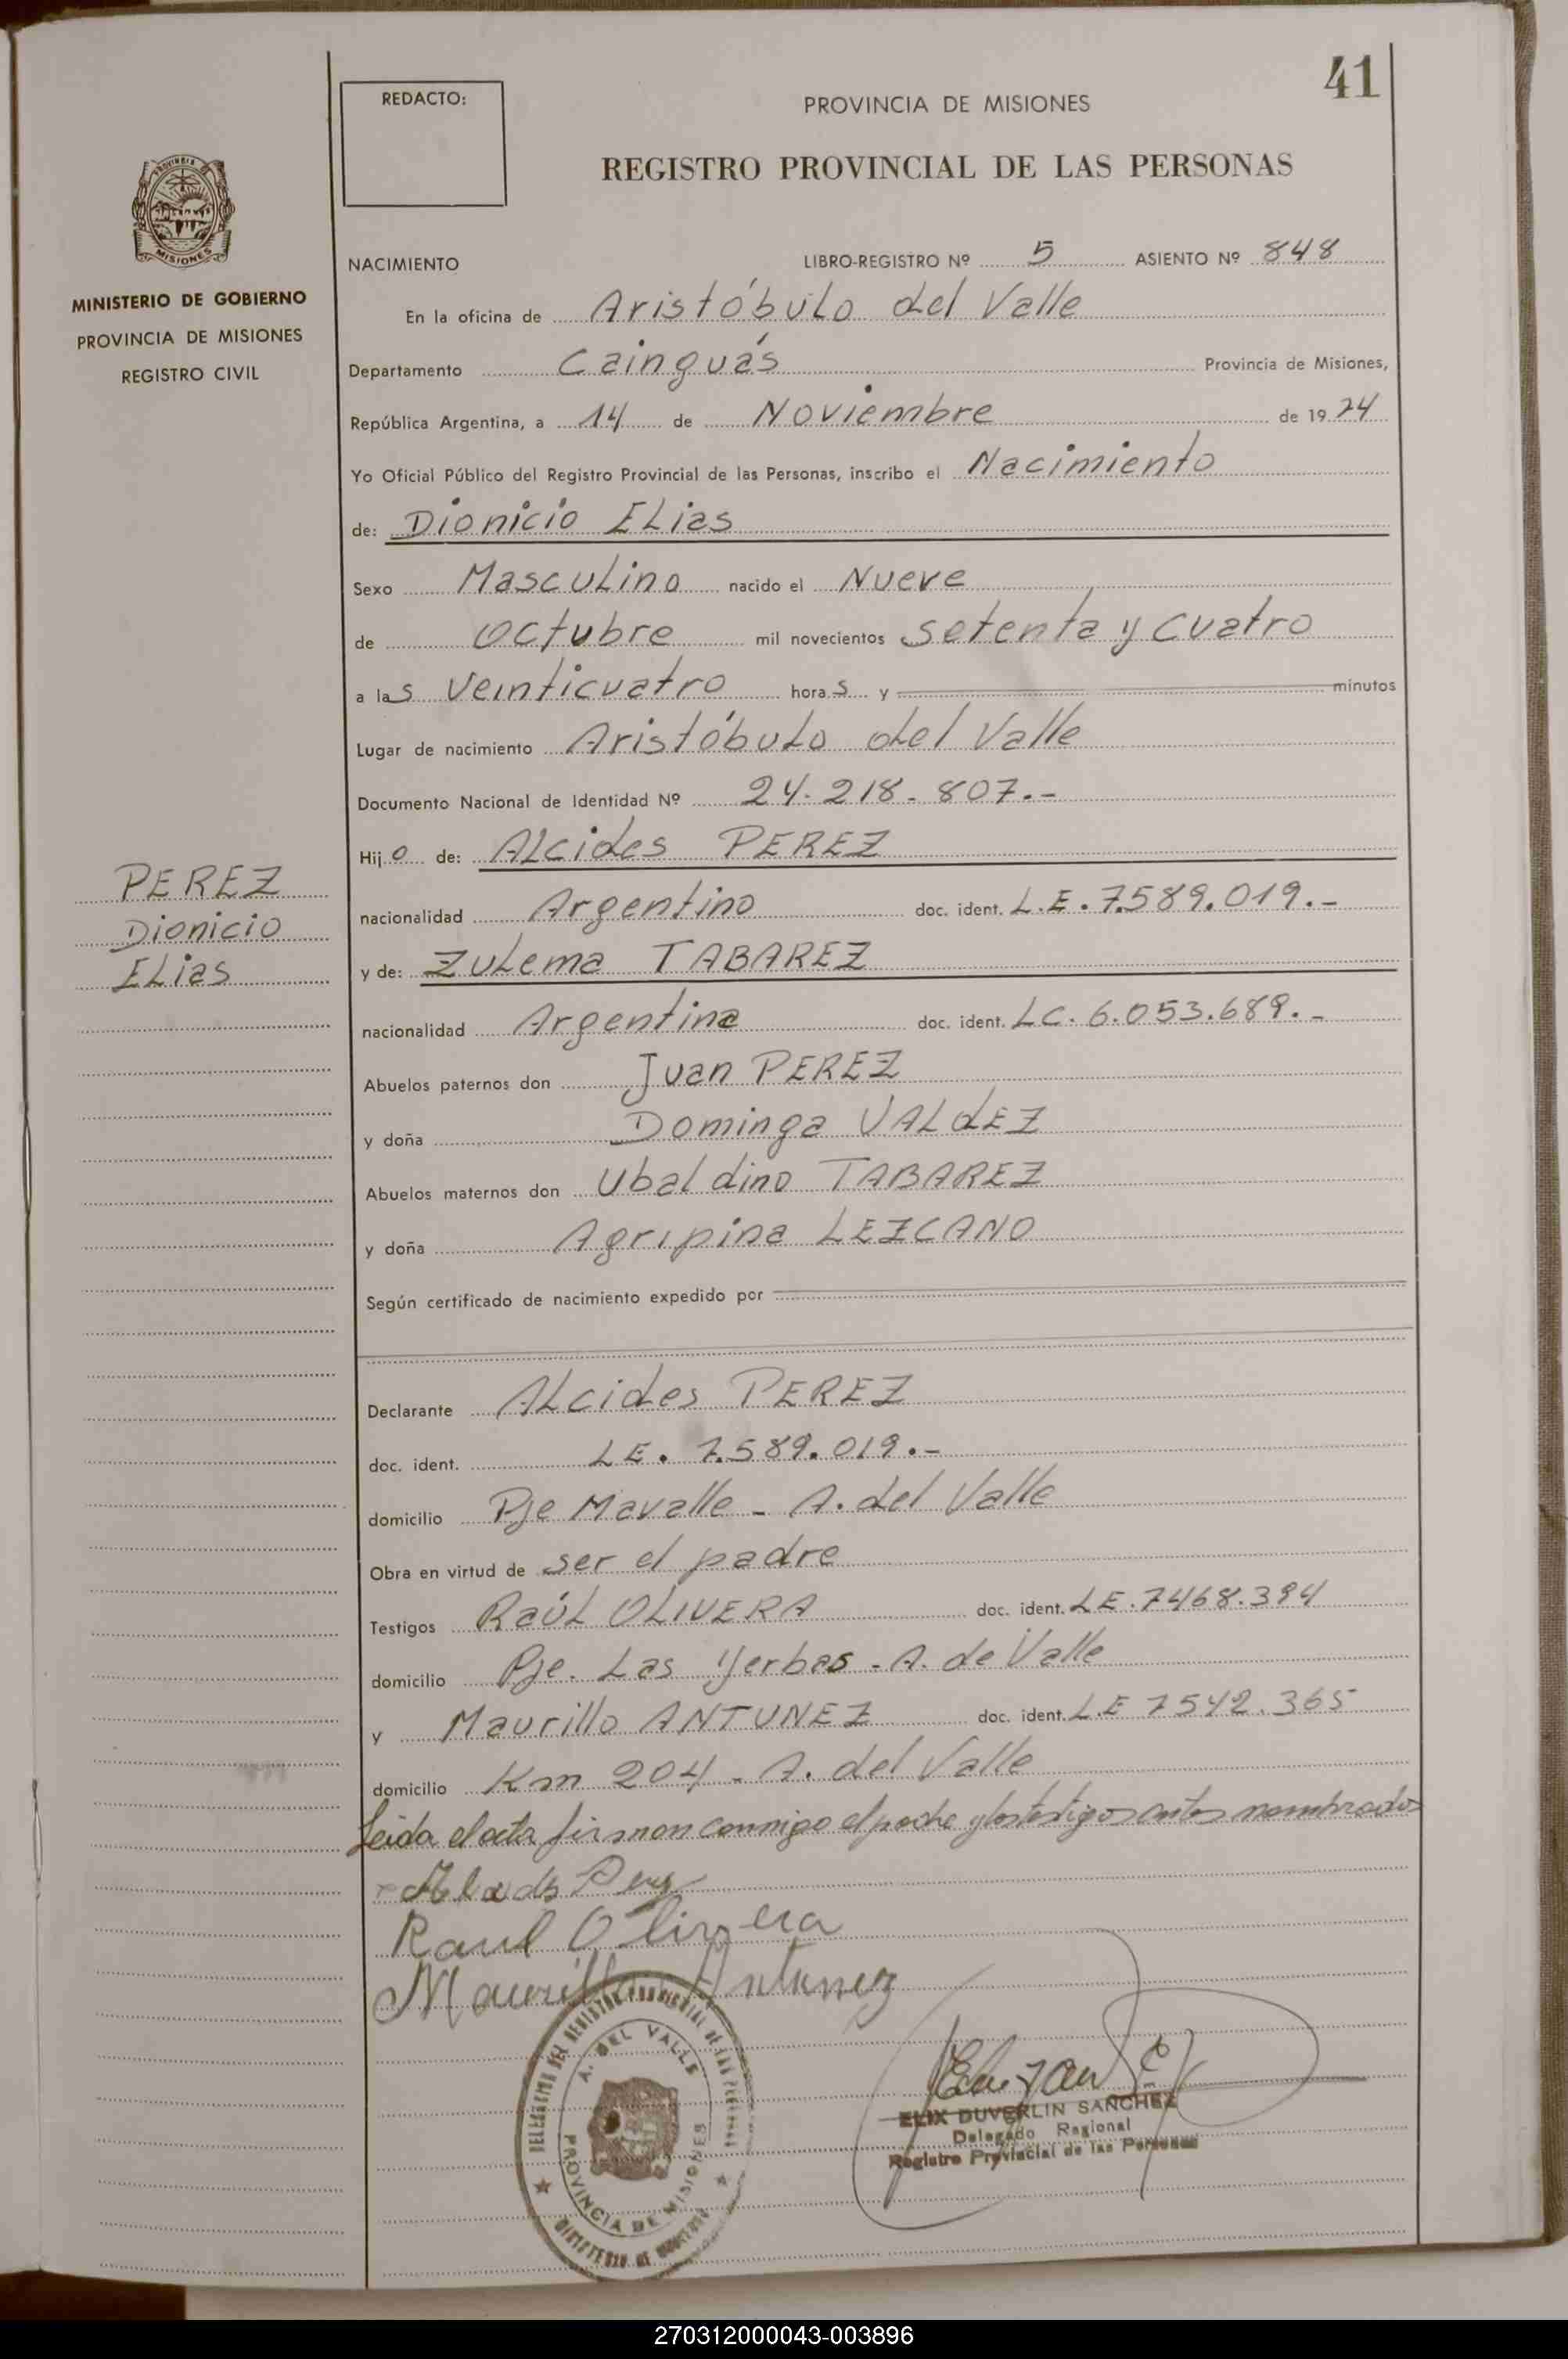 41
REDACTO:
PROVINCIA DE MISIONES
REGISTRO PROVINCIAL DE LAS PERSONAS
MISIONES
MINISTERIO DE GOBIERNO
PROVINCIA DE MISIONES
REGISTRO CIVIL
NACIMIENTO LIBRO-REGISTRO Nº 5 ASIENTO Nº 848
En la oficina de Aristóbulo del Valle
Departamento Cainguás Provincia de Misiones,
República Argentina, a 14 de Noviembre de 19 74
Yo Oficial Público del Registro Provincial de las Personas, inscribo el Nacimiento
de: Dionicio ELias
Sexo Masculino nacido el Nueve
de Octubre mil novecientos setenta y cuatro
a las veinticuatro horas y minutos
Lugar de nacimiento Aristóbulo del Valle
Documento Nacional de Identidad Nº 24.218.807.-
Hijo de: ALcides PEREZ
PEREZ
Dionicio
ELias
nacionalidad Argentino doc. ident. L.E. 7.589.019.-
y de: Zulema TABAREZ
nacionalidad Argentina doc. ident. LC. 6.053.689.-
Abuelos paternos don Juan PEREZ
y doña Dominga VALdEZ
Abuelos maternos don Ubaldino TABAREZ
y doña Agripina LEZCANO
Según certificado de nacimiento expedido por
Declarante ALcides PEREZ
doc. ident. LE. 7.589.019.-
domicilio Pje Mavalle - A. del Valle
Obra en virtud de ser el padre
Testigos RaúL OLIVERA doc. ident. LE. 7468.394
domicilio Pje. Las Yerbas - A. de Valle
y Maurillo ANTUNEZ doc. ident. L.E 7542.365
domicilio Km 204 - A. del Valle
Leida el acta firman conmigo el padre y los testigos antes nombrados
Raul Olivera
Maurillo Antunez
A. DEL VALLE
PROVINCIA DE MISIONES
ELIX DUVERLIN SANCHEZ
Delegado Regional
Registro Provincial de las Personas
270312000043-003896